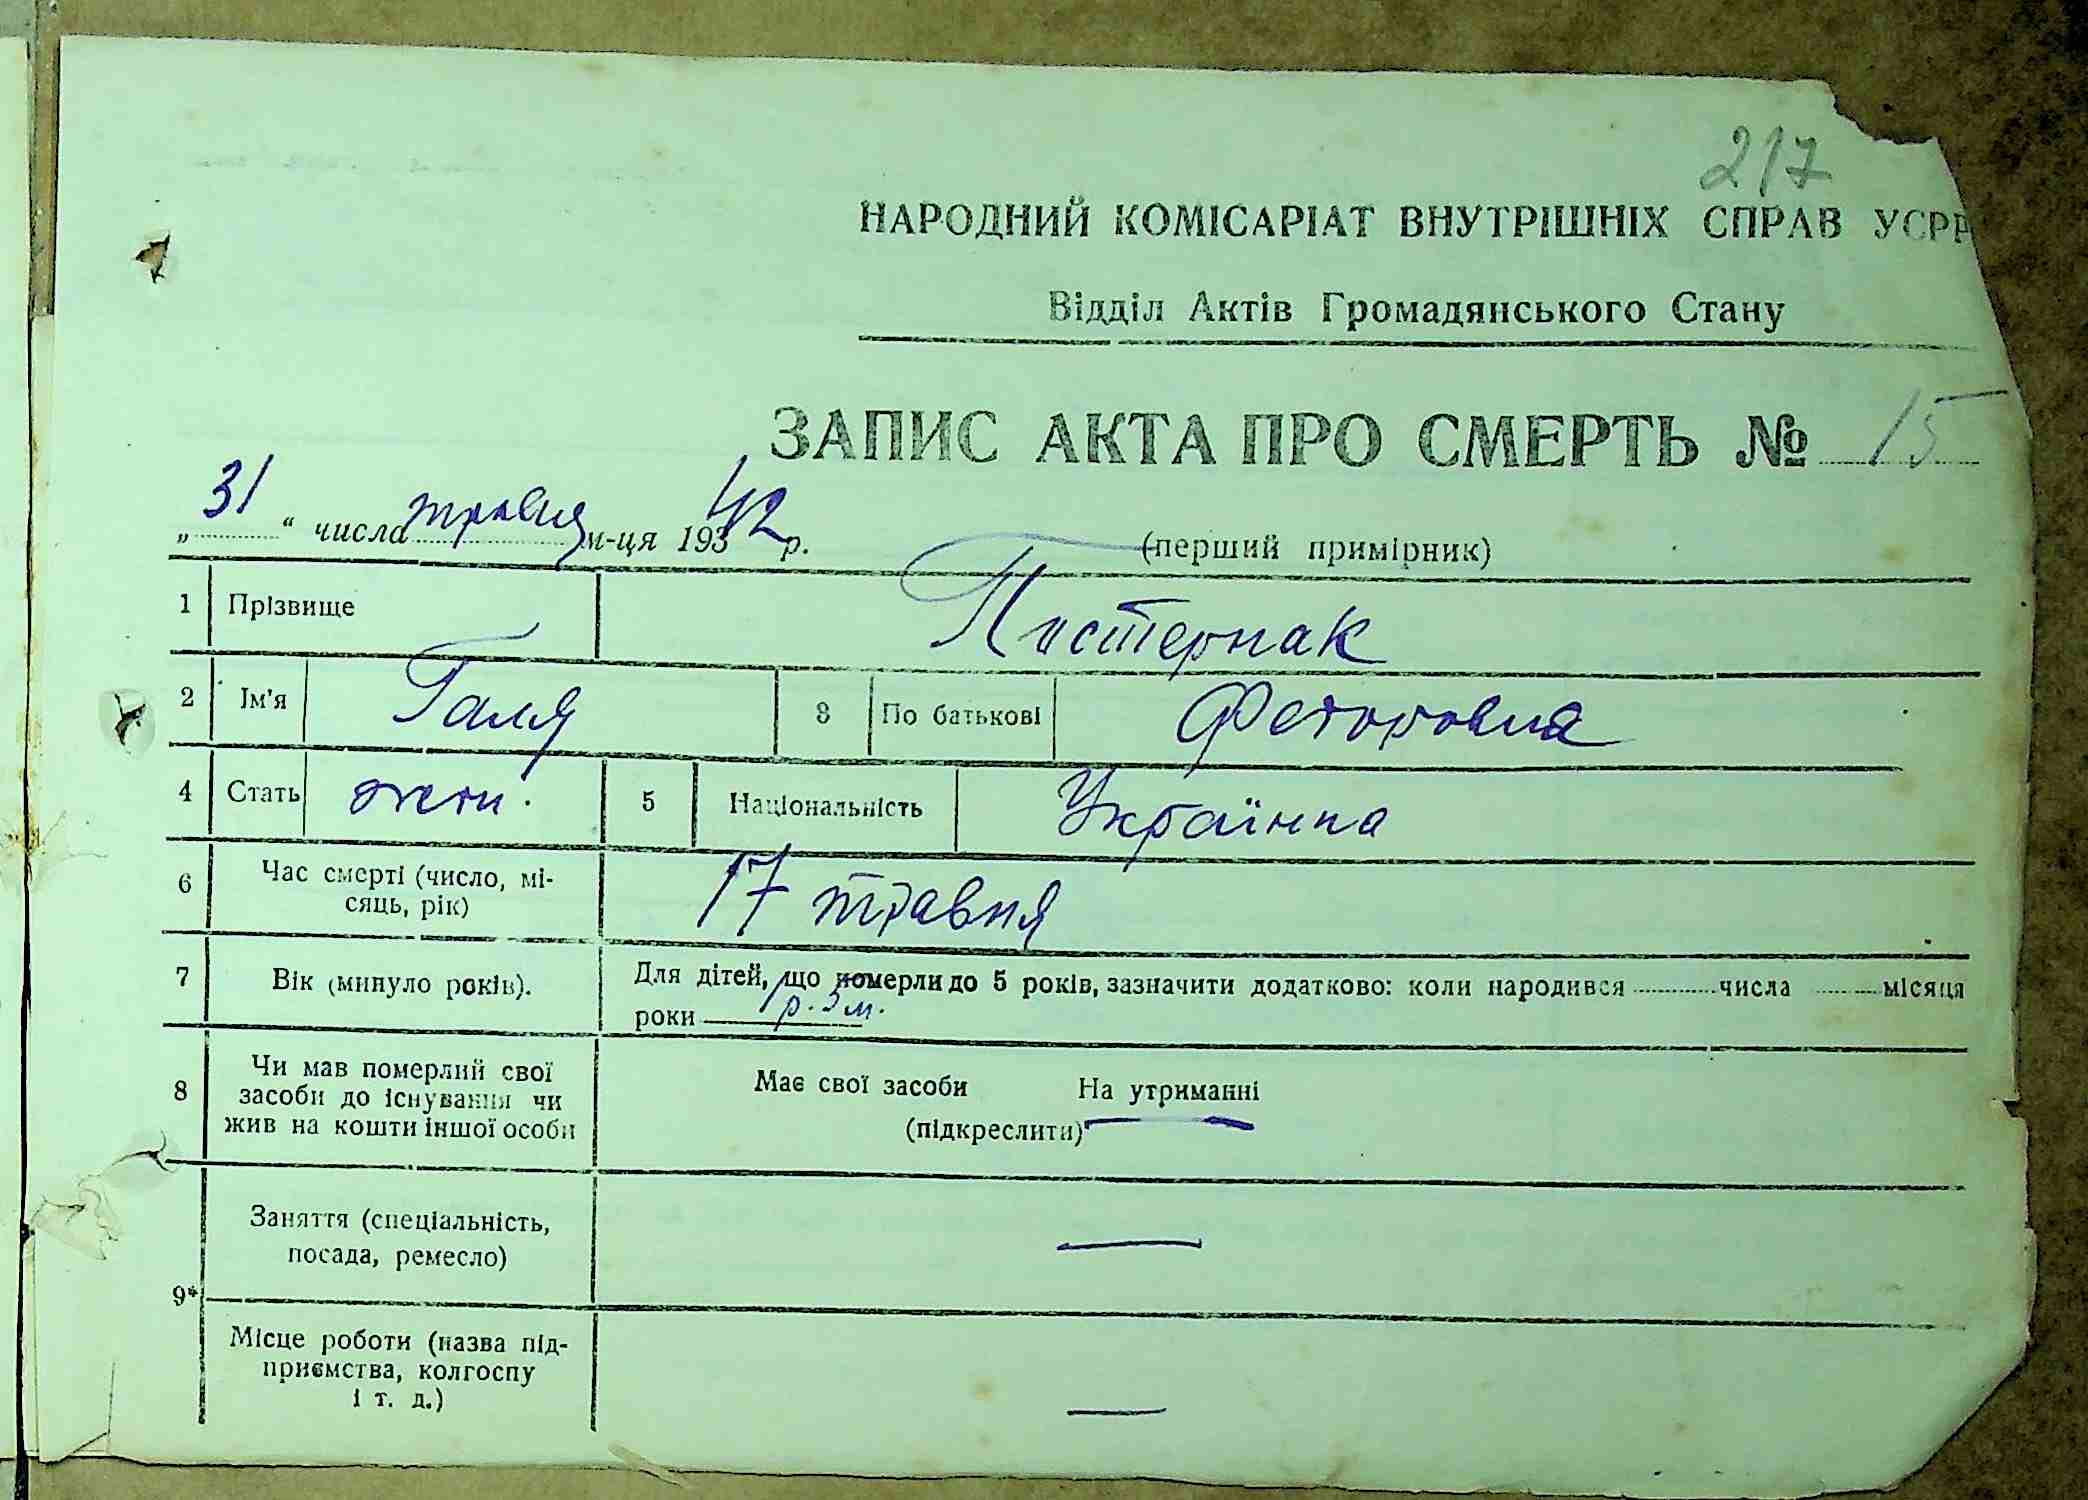 217
НАРОДНИЙ КОМІСАРІАТ ВНУТРІШНІХ СПРАВ УСРР
Відділ Актів Громадянського Стану
ЗАПИС АКТА ПРО СМЕРТЬ № 15
„ 31 “ числа травня м-ця 193 42 р. (перший примірник)
1 Прізвище Пастернак
2 Ім'я Галя 3 По батькові Федоровна
4 Стать жен. 5 Національність Українка
6 Час смерті (число, мі- 17 травня
сяць, рік)
7 Вік (минуло років). Для дітей, що померли до 5 років, зазначити додатково: коли народився числа місяця
роки 1 р. 3 м.
8 Чи мав померлий свої Має свої засоби На утриманні
засоби до існування чи
жив на кошти іншої особи (підкреслити)
Заняття (спеціальність, —
посада, ремесло)
9*
Місце роботи (назва під-
приємства, колгоспу
і т. д.) —